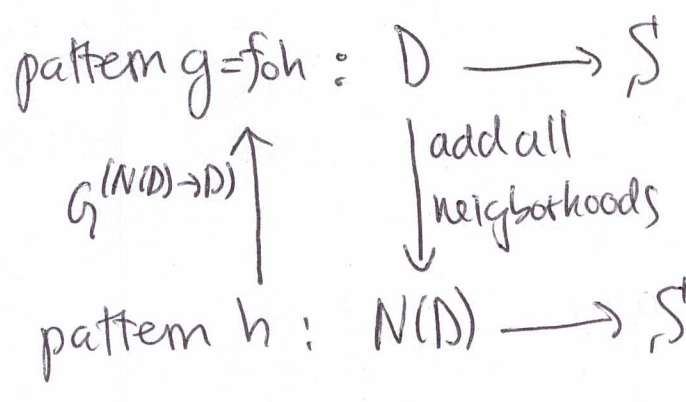 pattern g=foh : D → S
G(N(D)→D) add all
neigborhoods
pattern h : N(D) → S